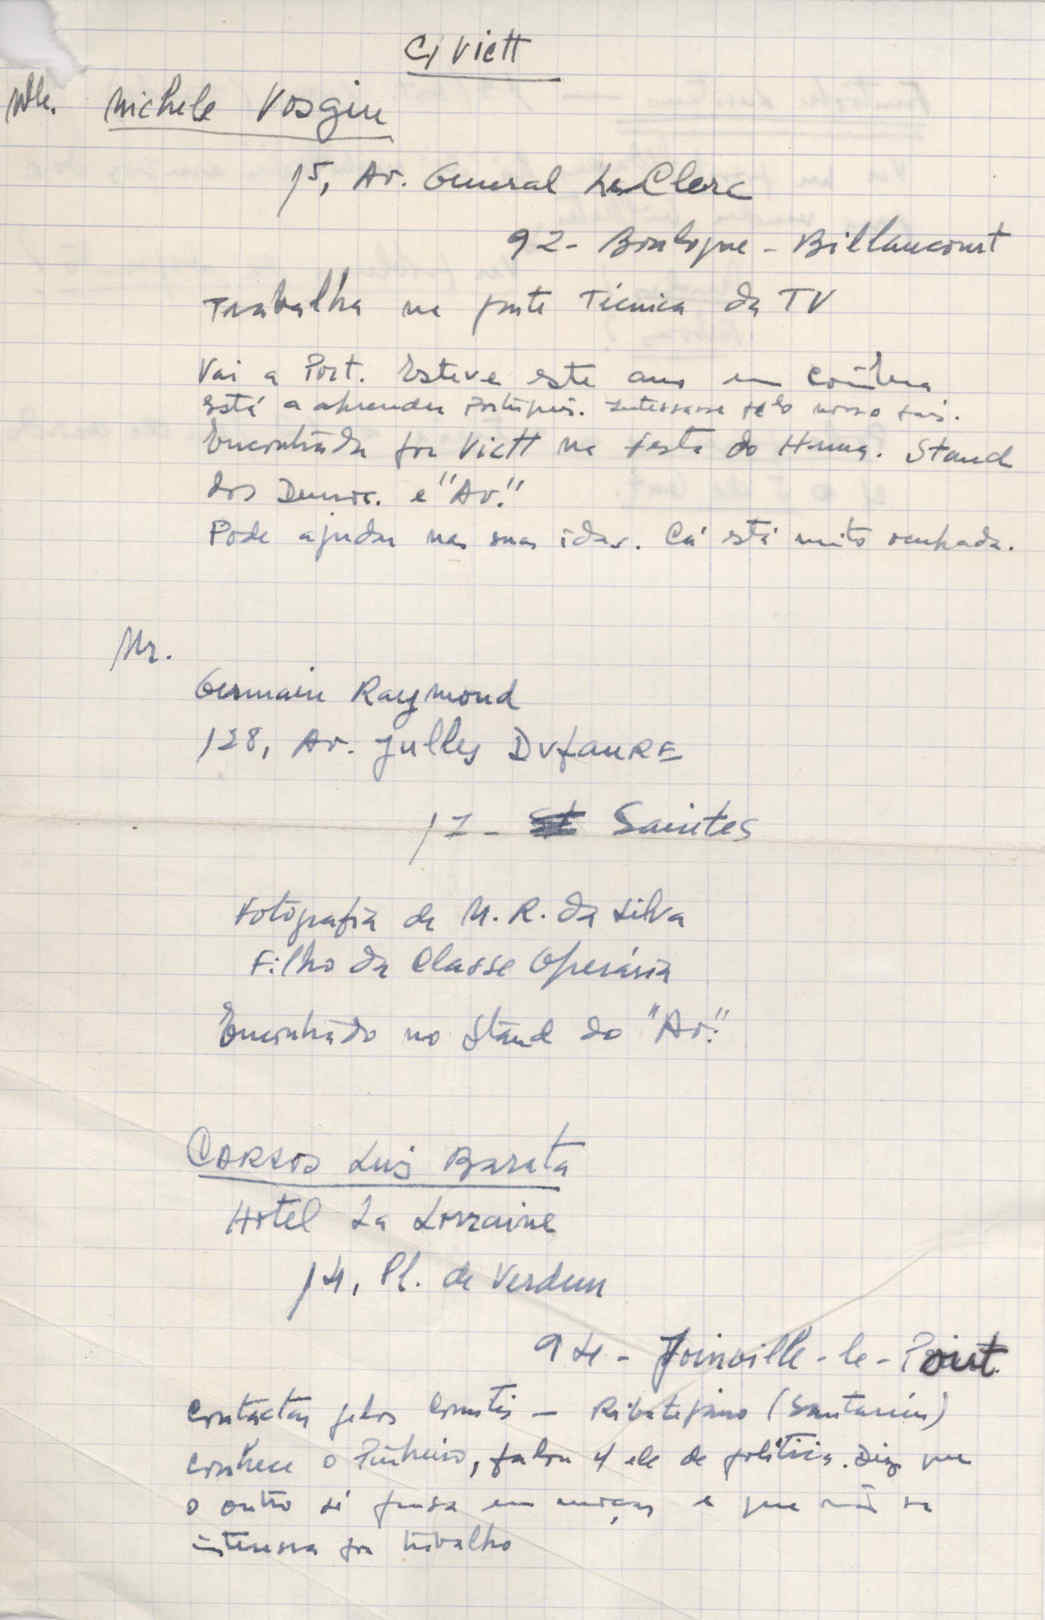 C/ Viett
Mlle. Michele Vosgin
15, Av. General LeClerc
92 - Boulogne - Billancourt
Trabalha na parte Técnica da TV
Vai a Port. Esteve este ano em Coimbra
Está a aprender Português. Interessa-se pelo nosso país.
Encontrada por Viett na festa do Huma. Stand
dos Democ. e "Av."
Pode ajudar nas suas idas. Cá está muito ocupada.
Mr.
Germain Raymond
128, Av. Julles DufauRE
17 - Saintes
Fotografia de M. R. da Silva
Filho da Classe Operária
Encontrado no Stand do "Av."
Carlos Luis Barata
Hotel La Lorraine
14, Pl. de Verdun
94 - Joinville - le - Pont
Contactar pelos Comités - Ribatejano (Santarém)
Conhece o Pinheiro, falou c/ ele de política. Diz que
o outro só pensa em moças e que não se
interessa por trabalho